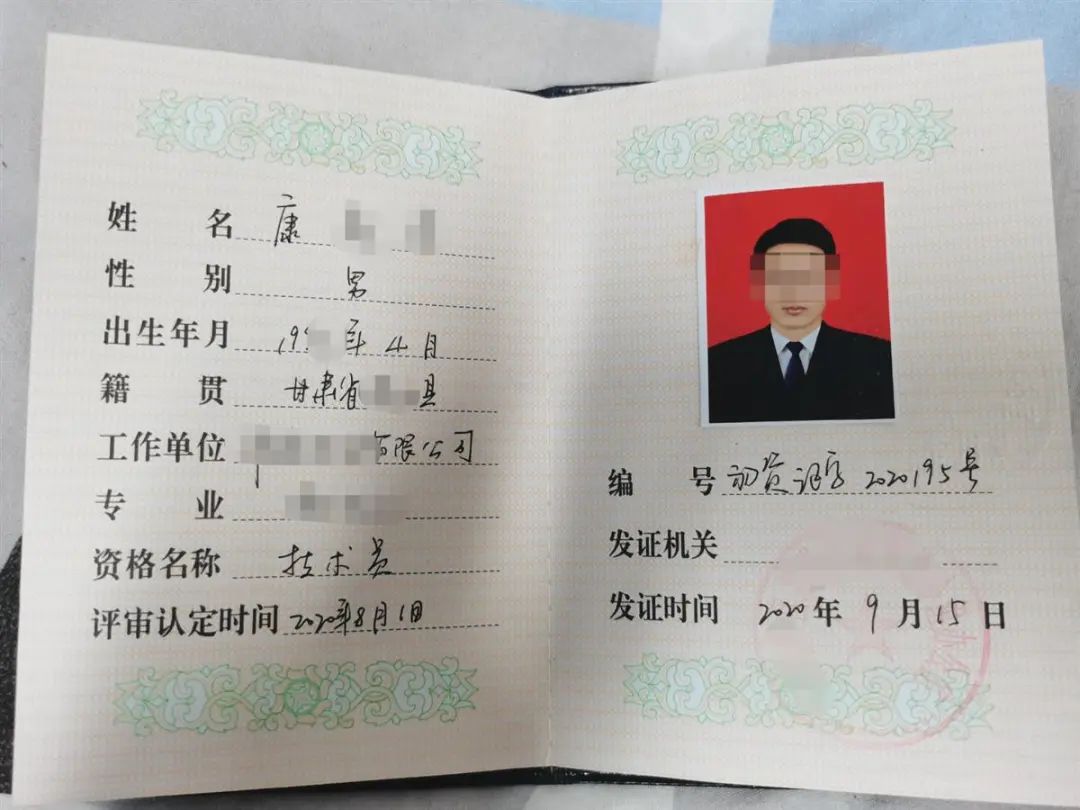 姓名 康
性别 男
出生年月 199 年 4月
籍贯 甘肃省 县
工作单位 有限公司
专业
资格名称 技术员
评审认定时间 2020年8月1日
编号 初资认字2020195号
发证机关
发证时间 2020年9月15日